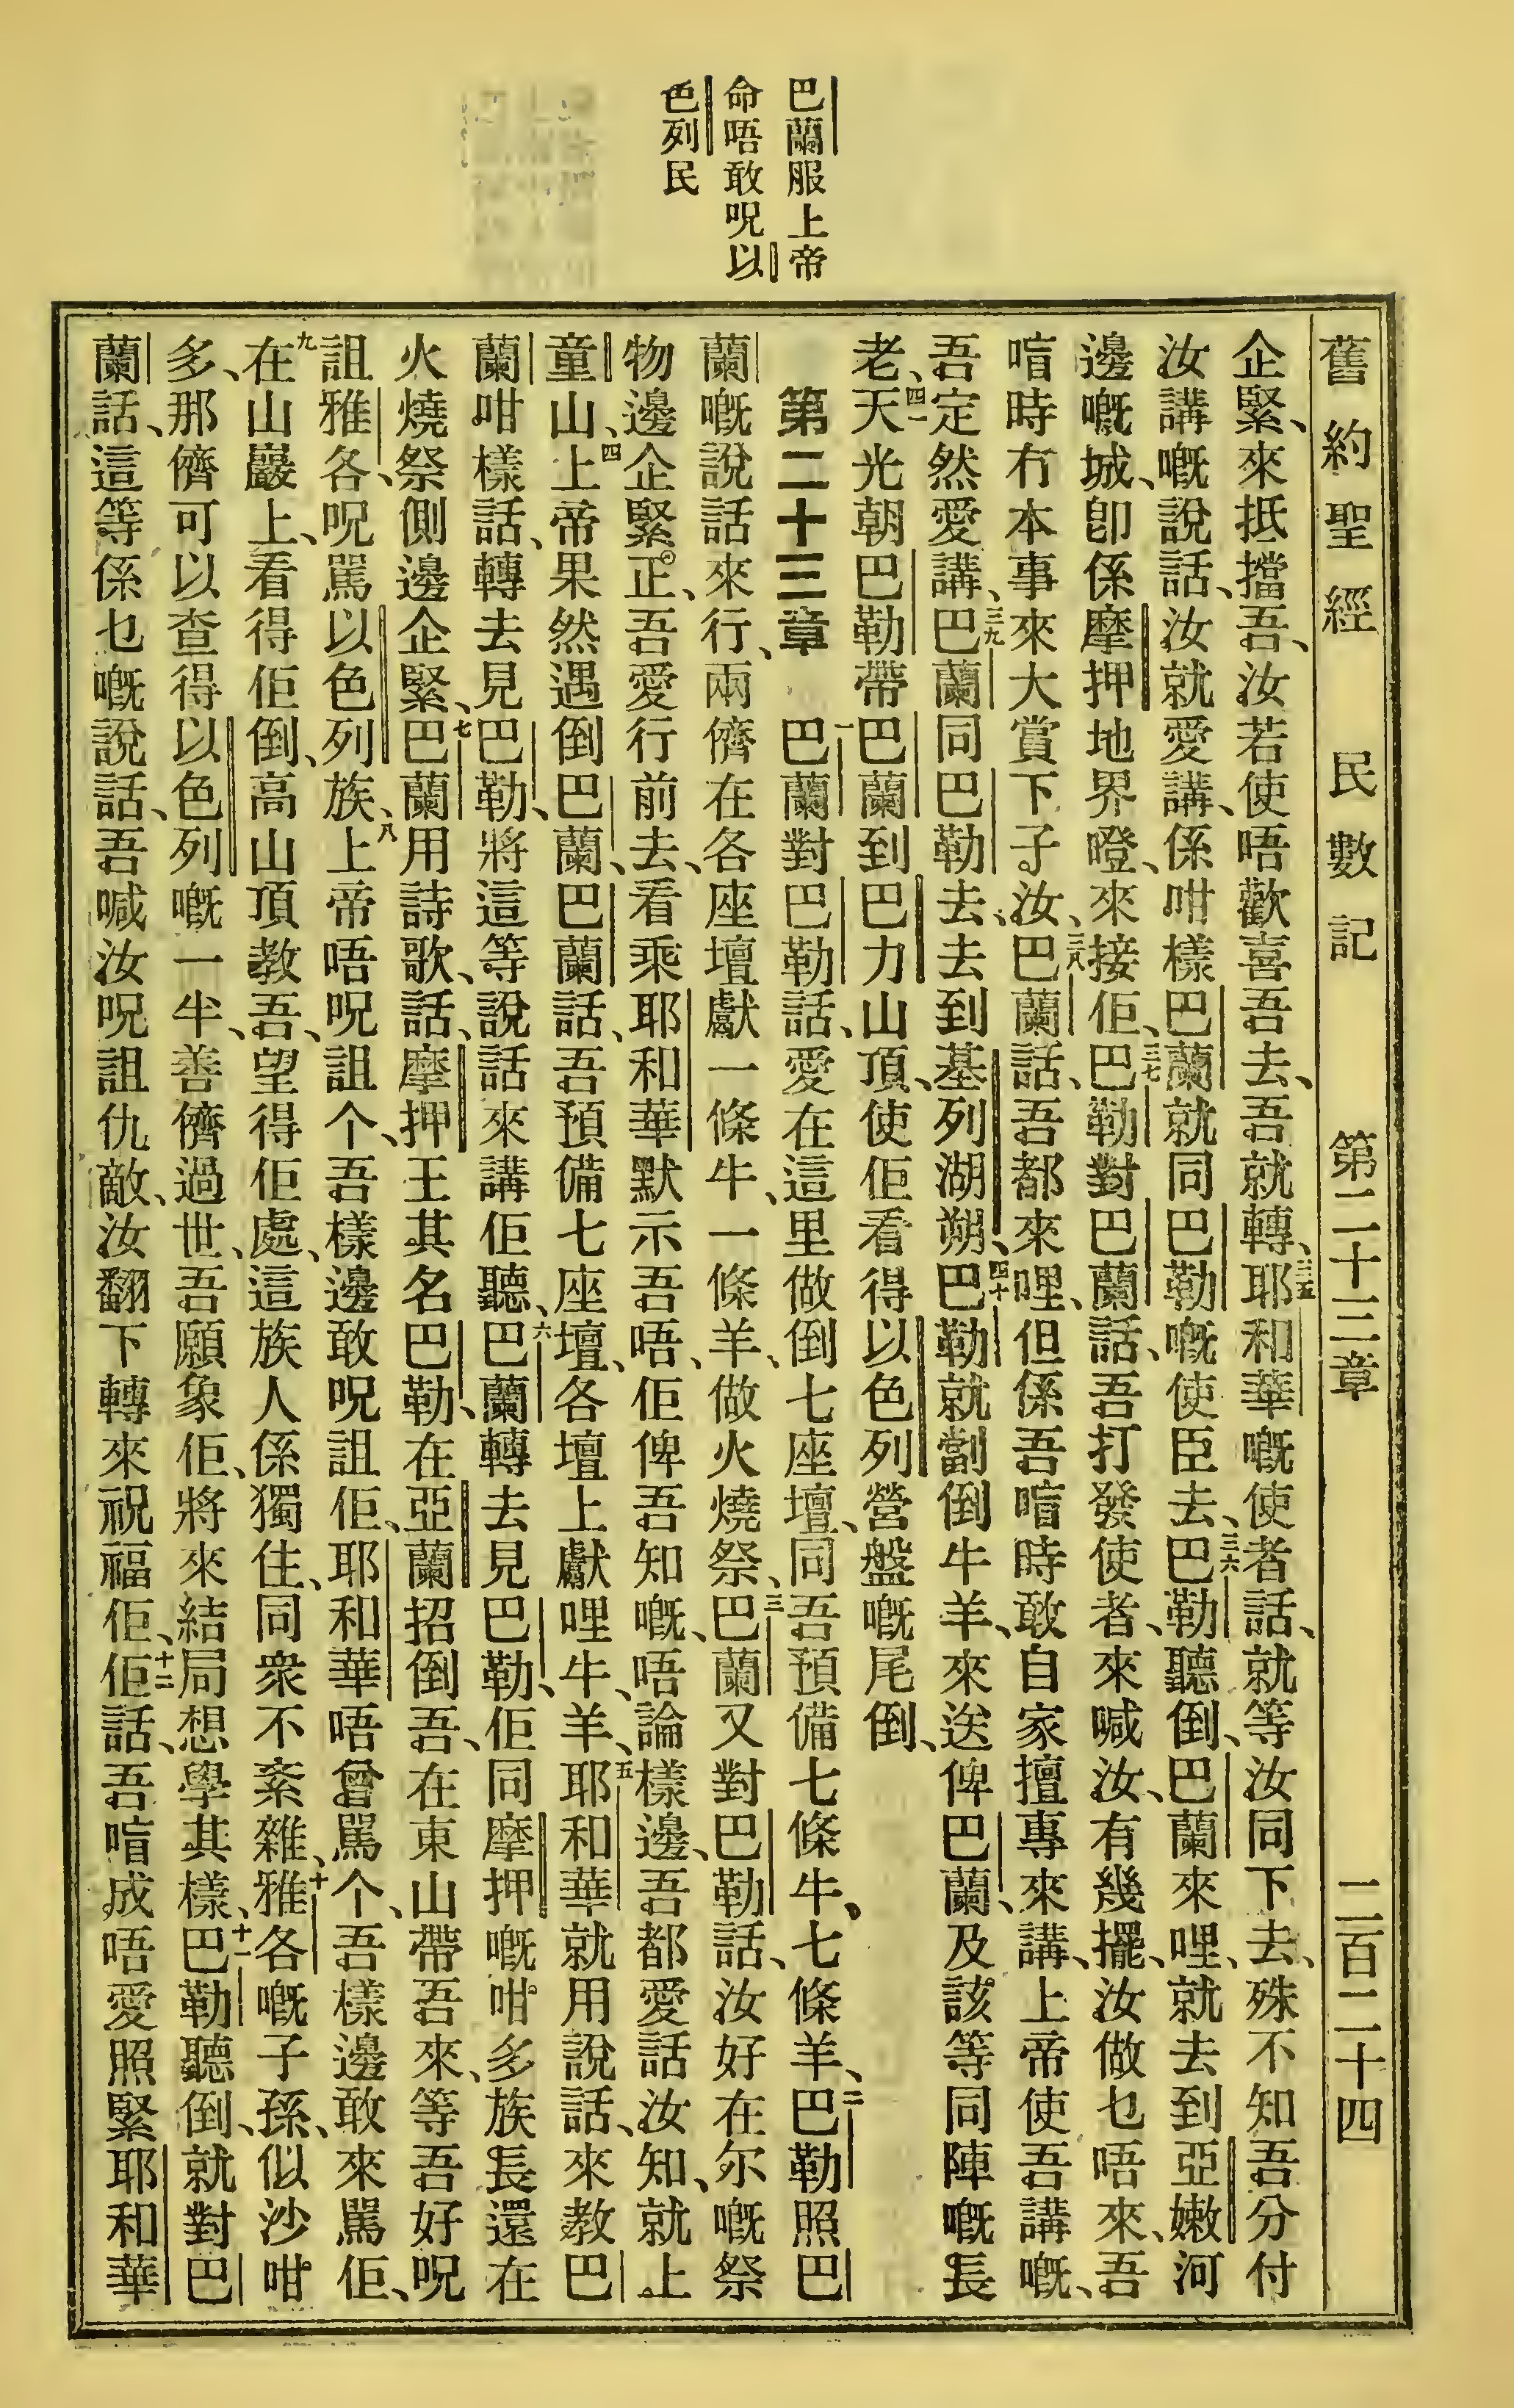 巴蘭服上帝
命唔敢呪以
色列民
舊約聖經 民數記 第二十三章 二百二十四
企緊、來抵擋吾、汝若使唔歡喜吾去、吾就轉、三五耶和華嘅使者話、就等汝同下去、殊不知吾分付
汝講嘅說話、汝就愛講、係咁樣巴蘭就同巴勒嘅使臣去、三六巴勒聽倒、巴蘭來哩、就去到亞嫩河
邊嘅城、卽係摩押地界璒、來接佢、三七巴勒對巴蘭話、吾打發使者、來喊汝、有幾擺、汝做乜唔來、吾
喧時冇本事來大賞下子汝、三八巴蘭話、吾都來哩、但係吾喧時敢自家擅專來講、上帝使吾講嘅、
吾定然愛講、三九巴蘭同巴勒去、去到基列湖朔、四十巴勒就劏倒牛羊、來送俾巴蘭、及該等同陣嘅長
老、四一天光朝巴勒帶巴蘭到巴力山頂、使佢看得以色列營盤嘅尾倒、
第二十三章 一巴蘭對巴勒話、愛在這里做倒七座壇、同吾預備七條牛、七條羊、二巴勒照巴
蘭嘅說話來行、兩儕在各座壇獻一條牛、一條羊、做火燒祭、三巴蘭又對巴勒話、汝好在尔嘅祭
物邊企緊、正吾愛行前去、看乘耶和華默示吾唔、佢俾吾知嘅、唔論樣邊、吾都愛話汝知、就上
童山、四上帝果然遇倒巴蘭、巴蘭話、吾預備七座壇、各壇上獻哩牛、羊、五耶和華就用說話、來教巴
蘭咁樣話、轉去見巴勒、將這等說話來講佢聽、六巴蘭轉去見巴勒、佢同摩押嘅咁多族長還在
火燒祭側邊企緊、七巴蘭用詩歌、話、摩押王其名巴勒、在亞蘭招倒吾、在東山帶吾來、等吾好呪
詛雅各、呪駡以色列族、八上帝唔呪詛个、吾樣邊敢呪詛佢、耶和華唔曾駡个、吾樣邊敢來駡佢、
九在山巖上、看得佢倒、高山頂教吾、望得佢處、這族人係獨住、同衆不紊雜、十雅各嘅子孫、似沙咁
多、那儕可以查得以色列嘅一半、善儕過世、吾願象佢、將來結局想學其樣、十一巴勒聽倒、就對巴
蘭話、這等係乜嘅說話、吾喊汝呪詛仇敵、汝翻下轉來祝福佢、十二佢話、吾喧成唔愛照緊耶和華